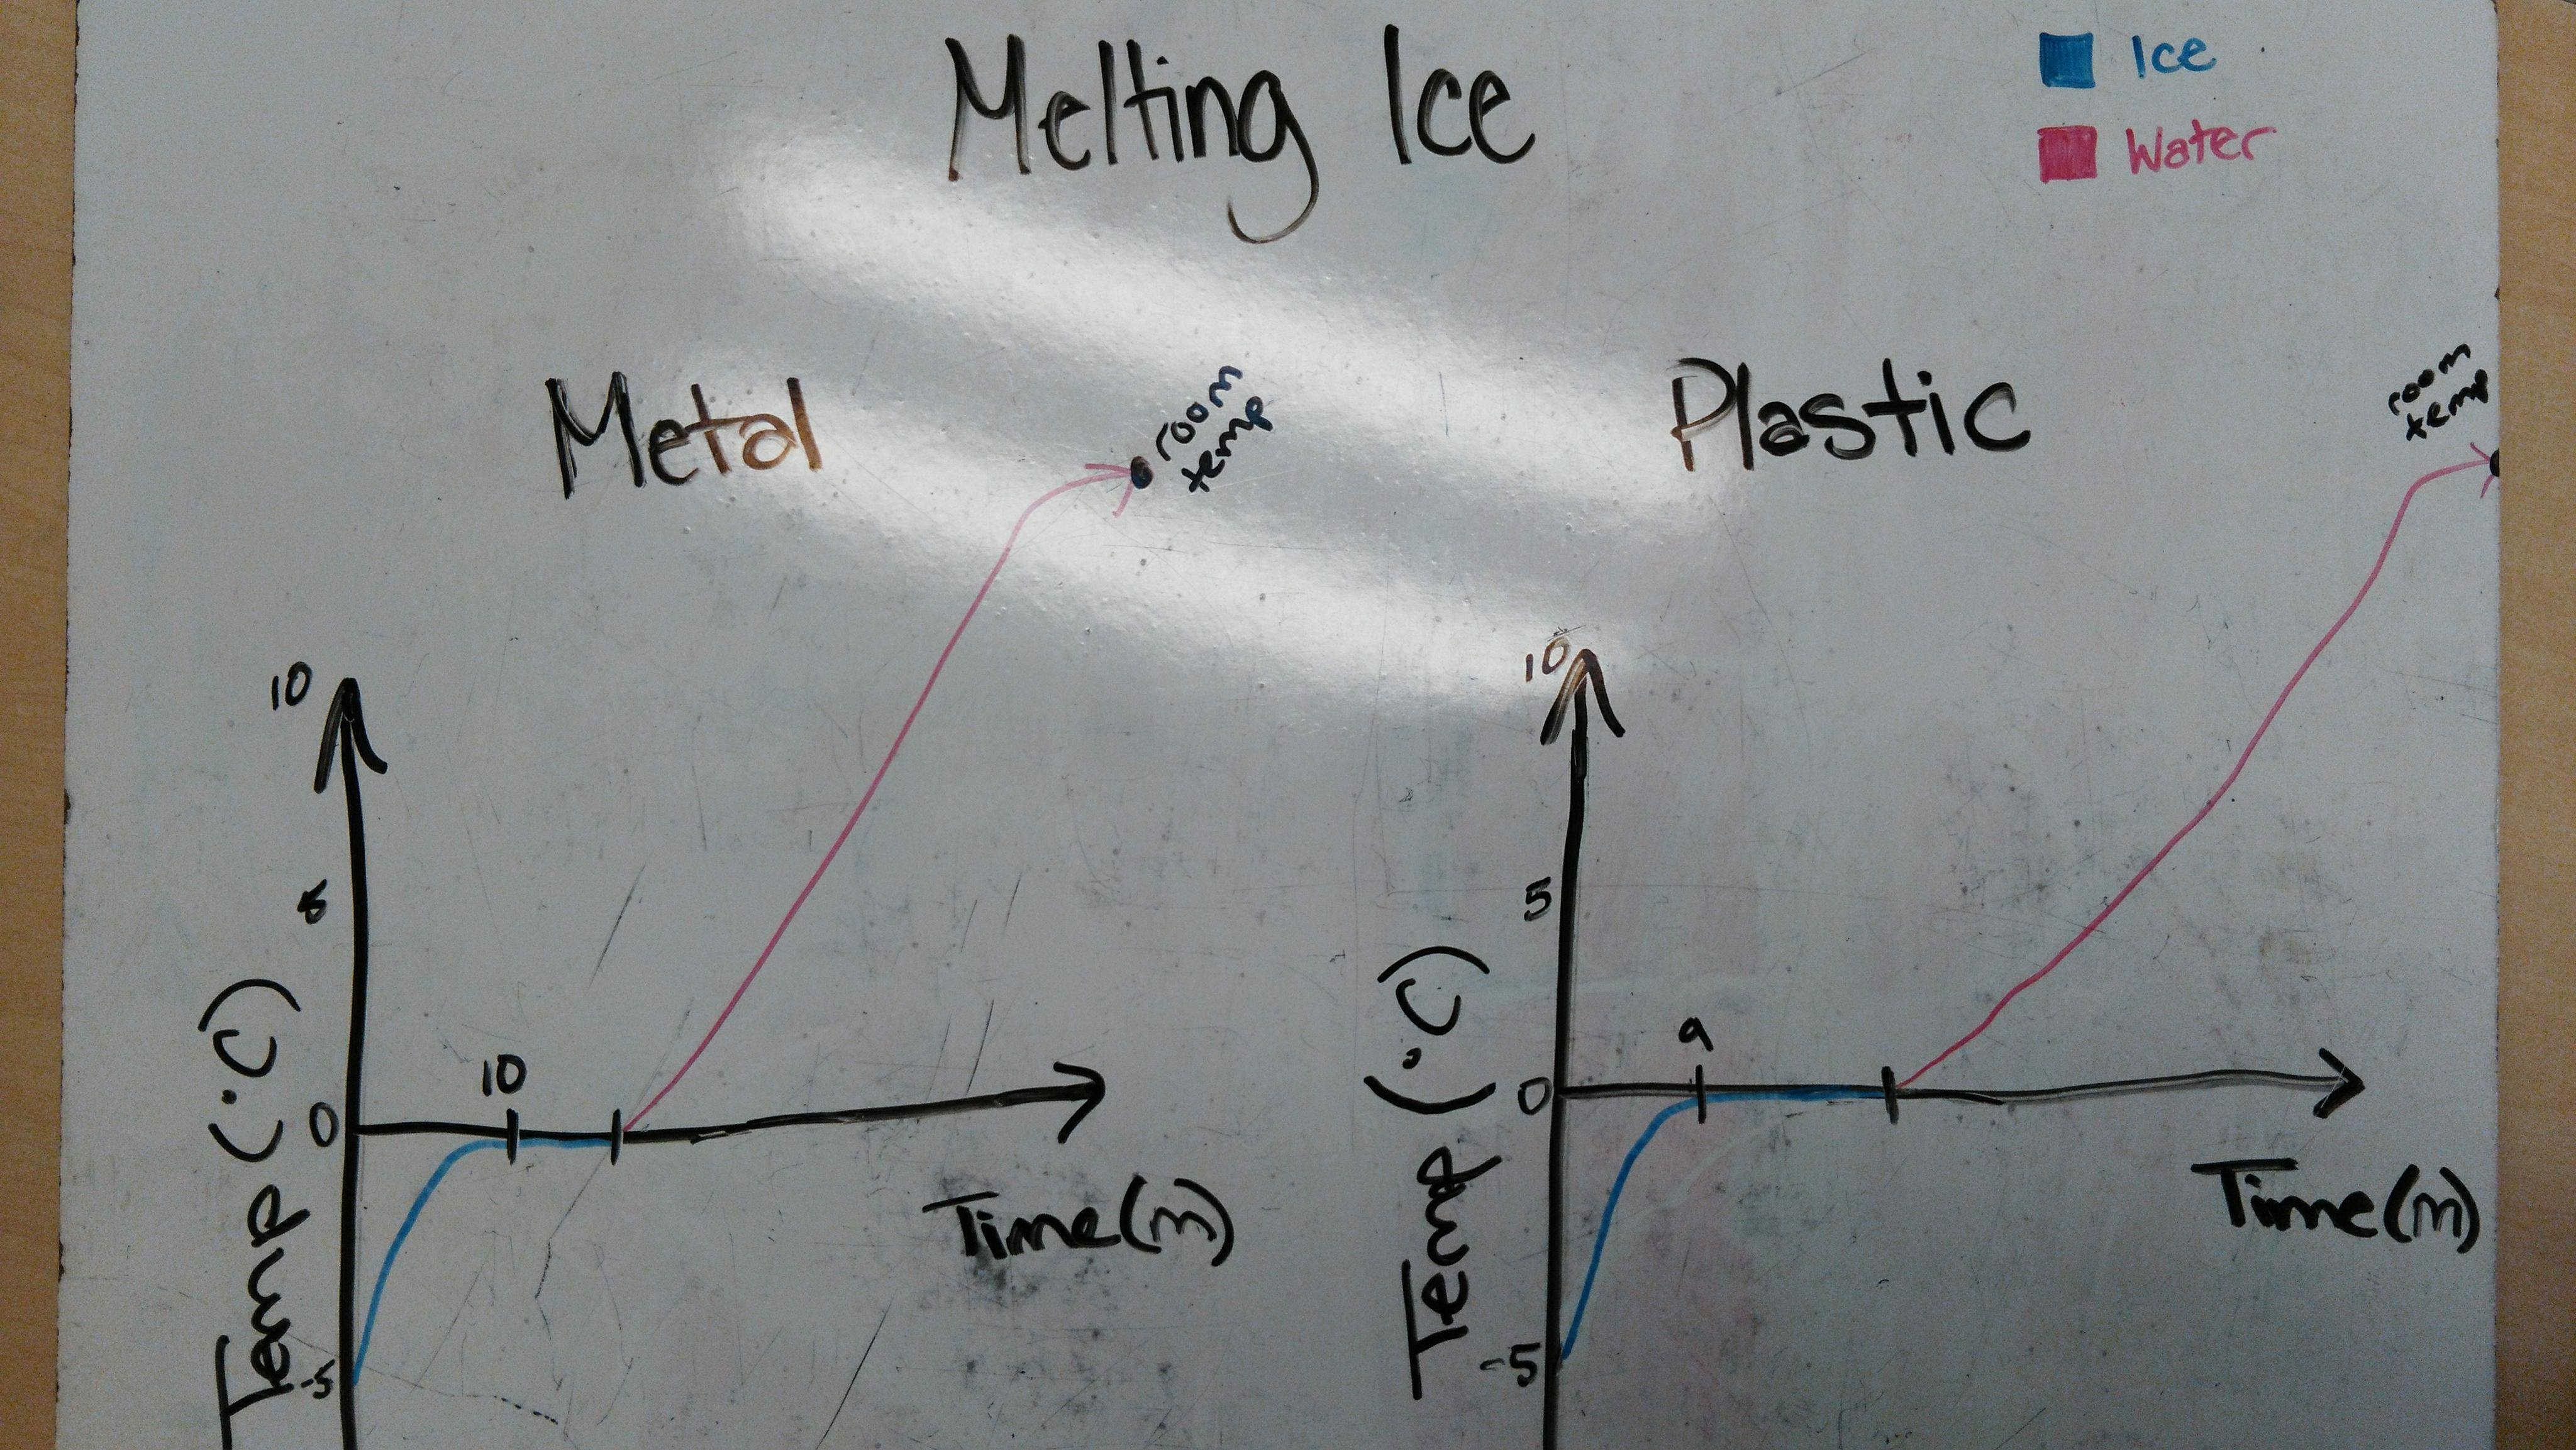 Melting Ice
Ice
Water
Metal
room
temp
10
5
0
-5
10
Temp (°C)
Time(m)
Plastic
room
temp
10
5
0
-5
9
Temp (°C)
Time(m)